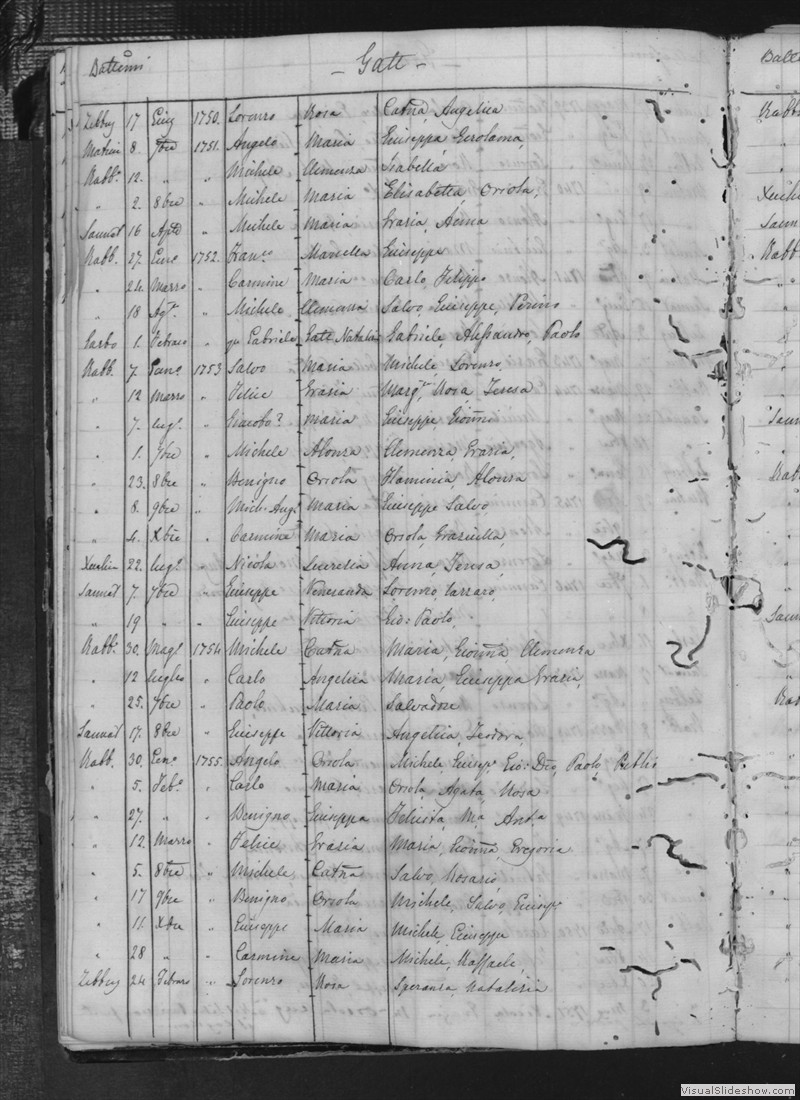 Battimi
- Gatt -
Zebbug 17 Giug 1750. Lorenzo Rosa Catña Angelica
8. 7bre 1751. Angelo Maria Giuseppa Gerolama,
Rabb.o 12. " " Michele Clemenza Isabella
" 2. 8bre " Michele Maria Elisabetta, Orsola,
Sannat 16 " Michele Maria Grazia, Anna
Rabb. 27. 1752. Fran.co Marietta Giuseppe
" 24. Marzo " Carmine Maria Carlo, Felippo
" 18 Ag.to " Michele Clemenza Salvo, Giuseppe,
Garbo 1. Febraro " qu Gabriele Gatt Natalizia Gabriele, Alessandro, Paolo
Rabb. 7. Genc. 1753 Salvo Maria Michele, Lorenzo,
" 12 Marzo " Felice Grazia Marg.ta Rosa, Teresa
" 7. lug.o " Giacobo Maria Giuseppe Gioñni
" 1. 7bre " Michele Alonza Clemenza, Grazia,
" 23. 8bre " Benigno Orsola Flaminia, Alonza
" 8. 9bre " Mich. Ang.o Maria Giuseppe Salvo
" 4. Xbre " Carmine Maria Orsola, Graziulla,
Xeuchia 22. lug.o " Nicola Lucrezia Anna, Teresa,
Sannat 7. 7bre " Giuseppe Veneranda Lorenzo,
" 19 " " Giuseppe Vittoria Gio: Paolo,
Rabb.o 30. Mag.o 1754. Michele Catña Maria, Gioñna, Clemenza
" 12 luglio " Carlo Angelica Maria, Giuseppa Grazia,
" 25. 7bre " Paolo Maria Salvadore
Sannat 17. 8bre " Giuseppe Vittoria Angelica, Teodora,
Rabb. 30. Gen.o 1755. Angelo Orsola Michele, Giusep.e Gio: Dco, Paolo,
" 5. Feb.o " Carlo Maria Orsola, Agata, Rosa
" 27. " " Benigno Giuseppa Felicita, Ma Anta
" 12. Marzo " Felice Grazia Maria, Gioñna, Gregoria
" 5. 8bre " Michele Catña Salvo, Rosario,
" 17 9bre " Benigno Orsola Michele, Salvo, Giusep.e
" 11. Xbre " Giuseppe Maria Michele, Giuseppe
" 28 " " Carmine Maria Michele, Raffaele,
Zebbug 24 Febraro " Lorenzo Rosa Speranza, Natalizia
VisualSlideshow.com